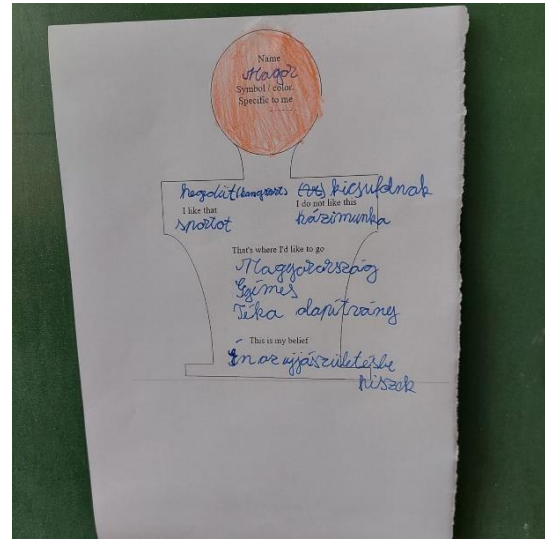 Name
Magor
Symbol / color.
Specific to me
hegedűt (hangszert)
I like that
sportot
kicsúfolnak
I do not like this
házimunka
That's where I'd like to go
Magyarország
Gyimes
Téka alapítvány
This is my belief
Én az újjászületésbe
hiszek